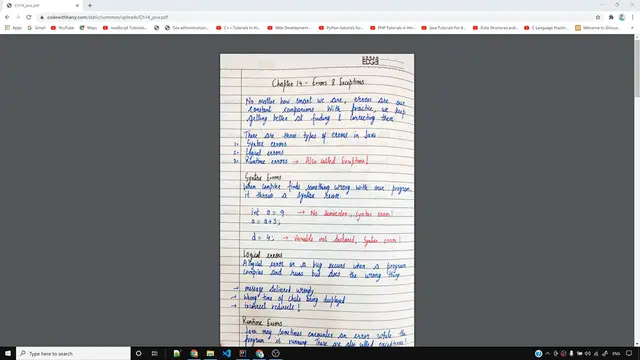 Ch14_java.pdf
codewithharry.com/static/common/uploads/Ch14_java.pdf
Apps
YouTube
Maps
Gmail
Site administration
C++ Tutorials In H
Web Development
Python Tutorials In
PHP Tutorials in Hin
Java Tutorials In Hi
Data Structures and
C Language Practic
Welcome to Discus
EDGE
Chapter 14 - Errors & Exceptions
No matter how smart we are, errors are our
constant companions. With practice, we keep
getting better at finding & correcting them.
There are three types of errors in Java
1. Syntax errors
2. Logical errors
3. Runtime errors → Also called Exceptions!
Syntax Errors
When compiler finds something wrong with our program,
it throws a syntax error
int a = 9 → No semicolon, syntax error!
a = a+3;
d = 4; → Variable not declared, Syntax error
Logical errors
A logical error or a bug occurs when a program
compiles and runs but does the wrong thing
→ message delivered wrongly
→ Wrong time of chats being displayed
→ incorrect redirects!
Runtime Errors
Java may sometimes encounter an error while the
program is running. These are also called exceptions!
Type here to search
ENG